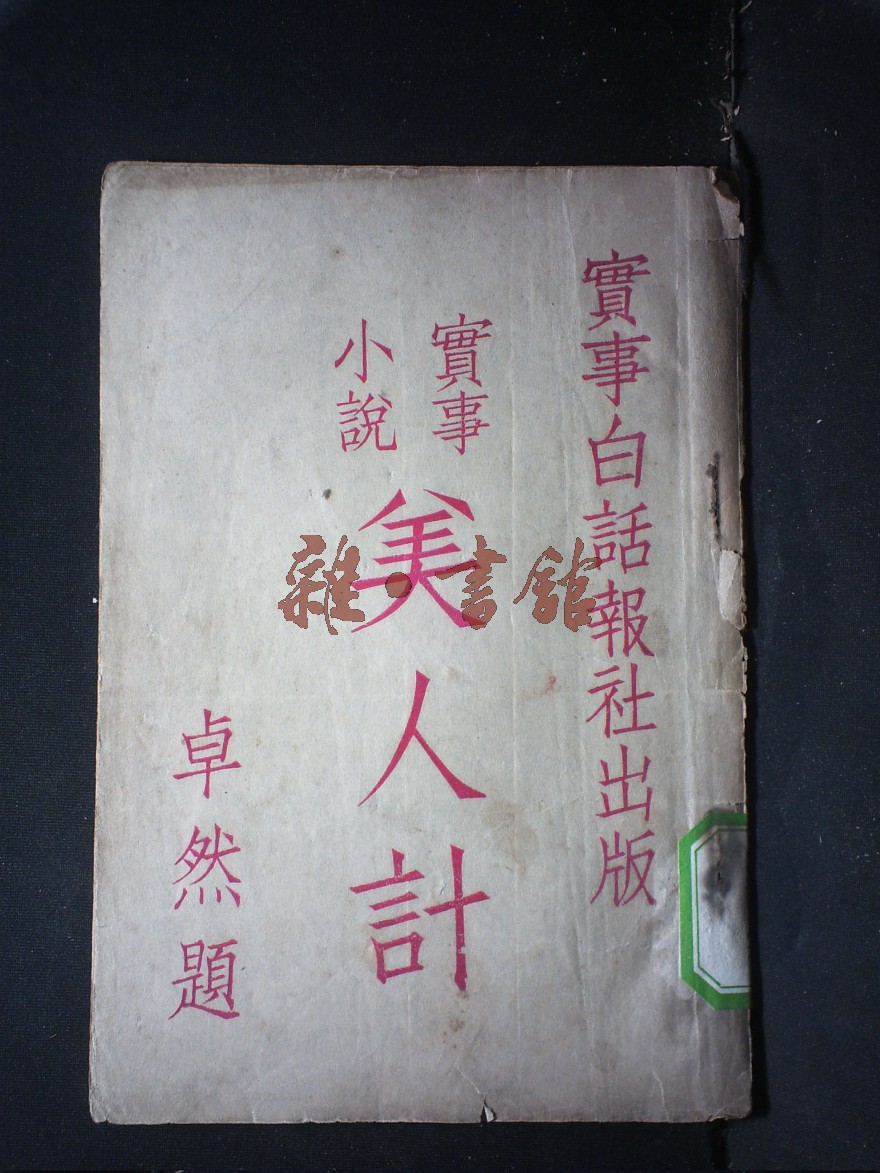 實事白話報社出版
實事
小說
美人計
卓然題
雜·書館